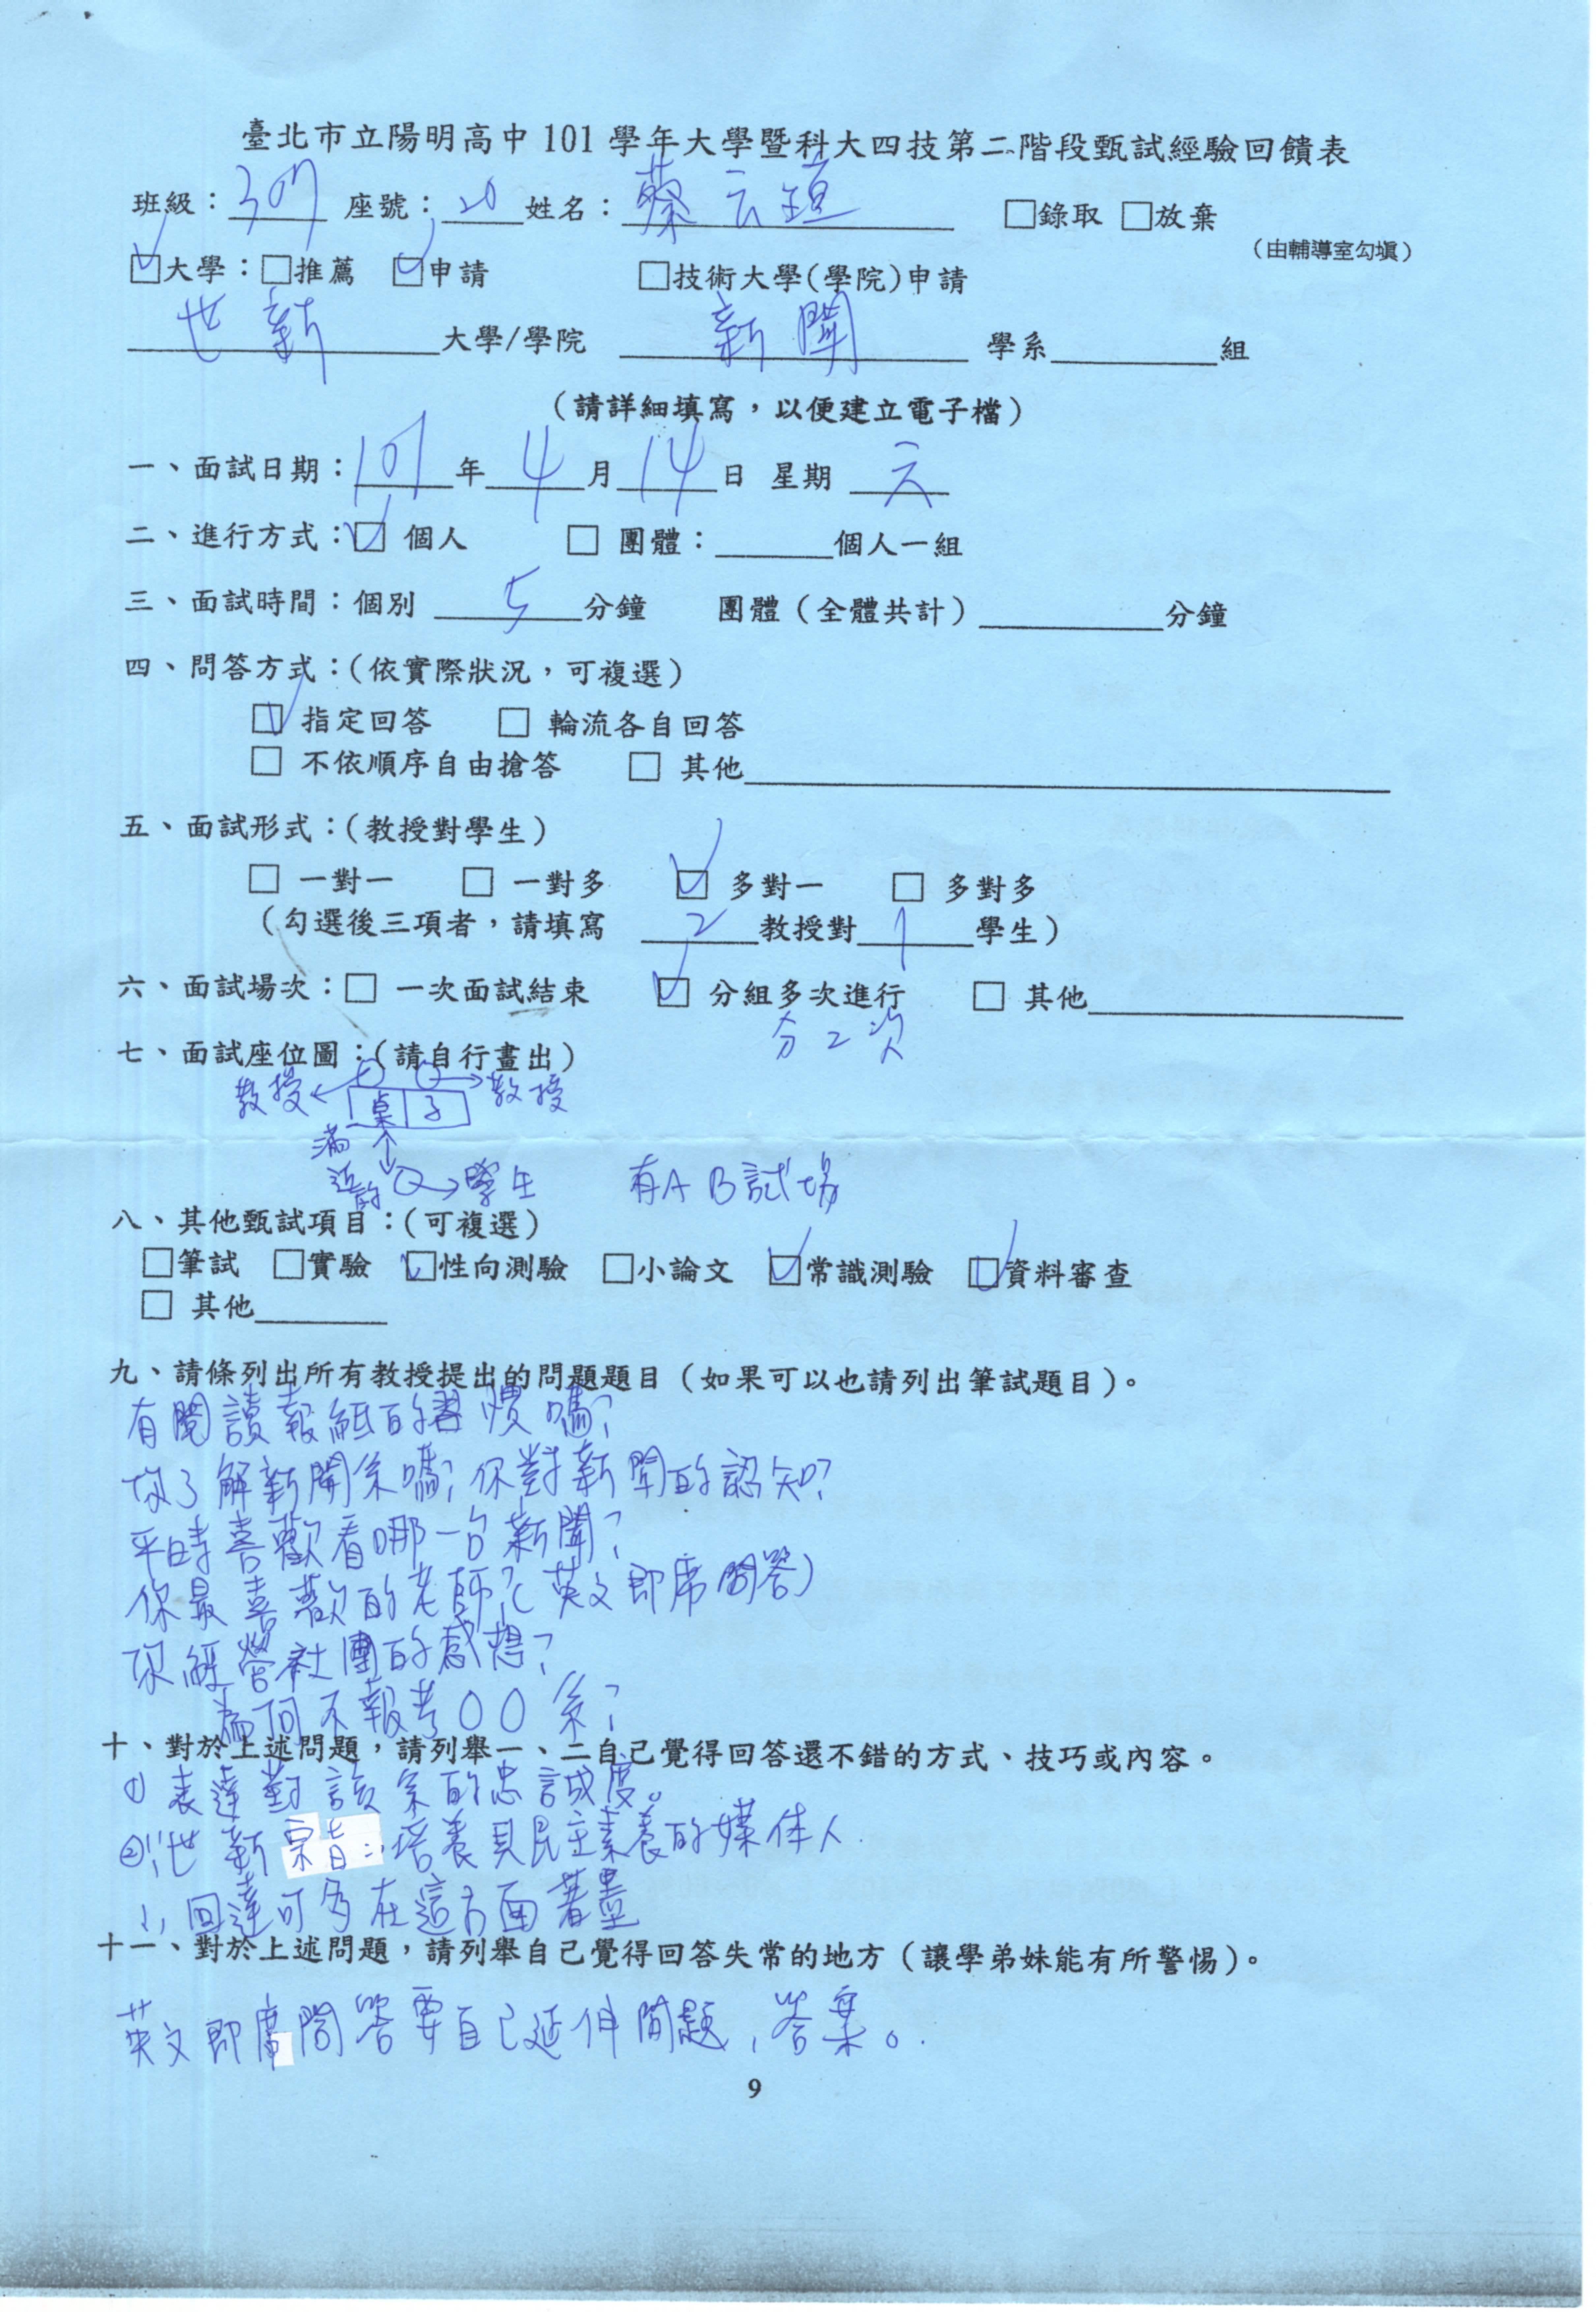 臺北市立陽明高中 101 學年大學暨科大四技第二階段甄試經驗回饋表
班級：307 座號：20 姓名：蔡云瑄 □錄取 □放棄
（由輔導室勾填）
☑大學：□推薦 ☑申請 □技術大學(學院)申請
世新大學/學院 新聞 學系______組
（請詳細填寫，以便建立電子檔）
一、面試日期：101年4月14日 星期 六
二、進行方式：☑ 個人 □ 團體：______個人一組
三、面試時間：個別 5 分鐘 團體（全體共計）______分鐘
四、問答方式：（依實際狀況，可複選）
☑ 指定回答 □ 輪流各自回答
□ 不依順序自由搶答 □ 其他______
五、面試形式：（教授對學生）
□ 一對一 □ 一對多 ☑ 多對一 □ 多對多
（勾選後三項者，請填寫 2 教授對 1 學生）
六、面試場次：□ 一次面試結束 ☑ 分組多次進行 □ 其他______
分2次
七、面試座位圖：（請自行畫出）
教授 桌子 教授
滿近的 學生 有A B試場
八、其他甄試項目：（可複選）
□筆試 □實驗 ☑性向測驗 □小論文 ☑常識測驗 ☑資料審查
□ 其他______
九、請條列出所有教授提出的問題題目（如果可以也請列出筆試題目）。
有閱讀報紙的習慣嗎?
你了解新聞系嗎? 你對新聞的認知?
平時喜歡看哪一台新聞?
你最喜歡的老師?(英文即席問答)
你經營社團的感想?
為何不報考〇〇系?
十、對於上述問題，請列舉一、二自己覺得回答還不錯的方式、技巧或內容。
① 表達對該系的忠誠度。
② ∵世新宗旨：培養具民主素養的媒体人.
∴回達可多在這方面著墨
十一、對於上述問題，請列舉自己覺得回答失常的地方（讓學弟妹能有所警惕）。
英文即席問答要自己延伸問題、答案。
9